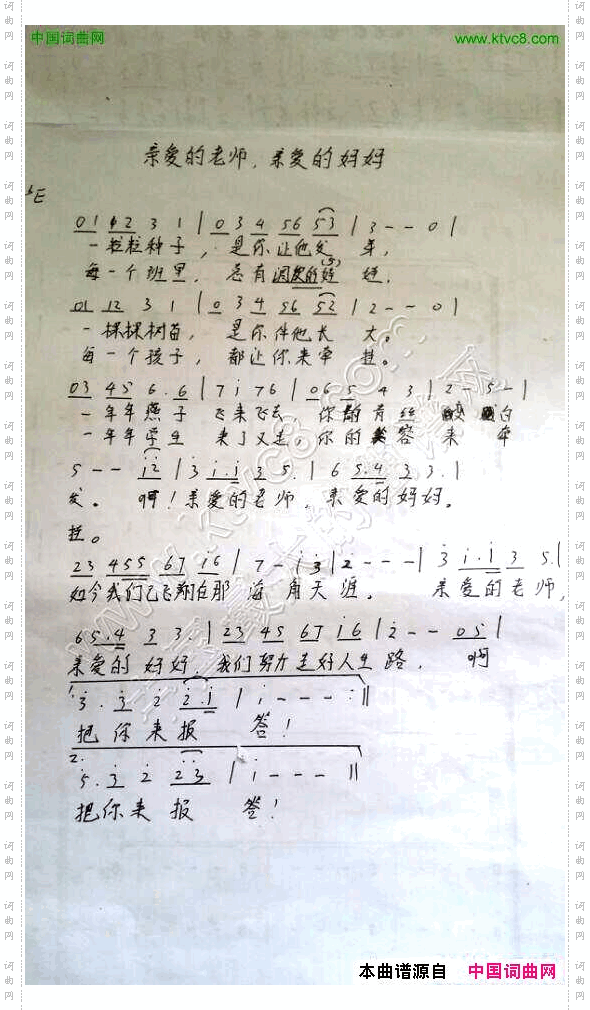 中国词曲网 www.ktvc8.com
亲爱的老师,亲爱的妈妈
♭E
01 12 3 1 | 0 3 4 56 53 | 3 - - 0 |
一粒粒种子,是你让他发 年,
每一个班里,总有调皮的娃 娃,
01 12 3 1 | 0 3 4 56 52 | 2 - - 0 |
一棵棵树苗,是你伴他长 大。
每一个孩子,都让你来牵 挂。
03 45 6. 6 | 7 i 76 | 06 5 4 3 | 2 - 5 - |
一年年燕子 飞来飞去 你的青丝 白
一年年学生 来了又走,你的笑容 来 牵
5 - - i2 | 3 i. i 3 5. | 6 5.4 3 3. |
发。 啊!亲爱的老师,亲爱的妈妈。
挂。
23 455 67 i6 | 7 - i 3 | 2 - - - | 3 i. i 3 5. |
如今我们已飞翔在那 海角天涯。 亲爱的老师,
6 5.4 3 3. | 23 45 67 i6 | 2 - - 05 |
亲爱的妈妈,我们努力走好人生路, 啊
1.
3. 3 2 2.1 | i - - - :||
把你来报 答!
2.
5. 3 2 23 | i - - - ||
把你来报 答!
本曲谱源自 中国词曲网